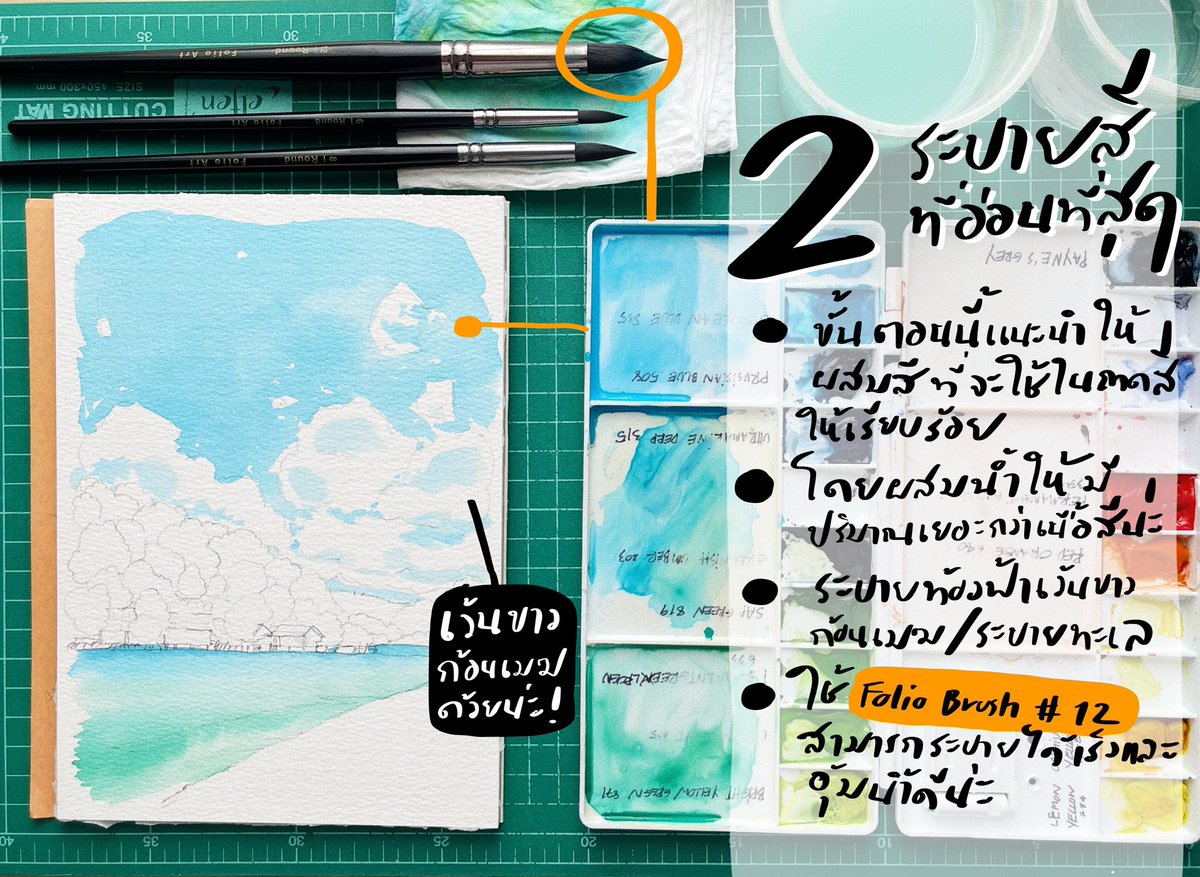 2 ระบายสี
ที่อ่อนที่สุด
• ขั้นตอนนี้แนะนำให้
ผสมสีที่จะใช้ในถาดสี
ให้เรียบร้อย
• โดยผสมน้ำให้มี
ปริมาณเยอะกว่าเนื้อสีนะ
• ระบายท้องฟ้าเว้นขาว
ก้อนเมฆ/ระบายทะเล
• ใช้ Folio Brush #12
สามารถระบายได้เร็วและ
อุ้มน้ำดีค่ะ
เว้นขาว
ก้อนเมฆ
ด้วยค่ะ!
Round
Folio Art
Round
Folio Art
6 | Round
Folio Art
elfen
CUTTING MAT
SIZE: 450x300 mm
PAYNE'S GREY
PRUSSIAN BLUE 508
ULTRAMARINE DEEP 315
SAP GREEN 819
BRIGHT YELLOW GREEN 871
LEMON
YELLOW
40
35
25
20
15
10
40
35
30
25
20